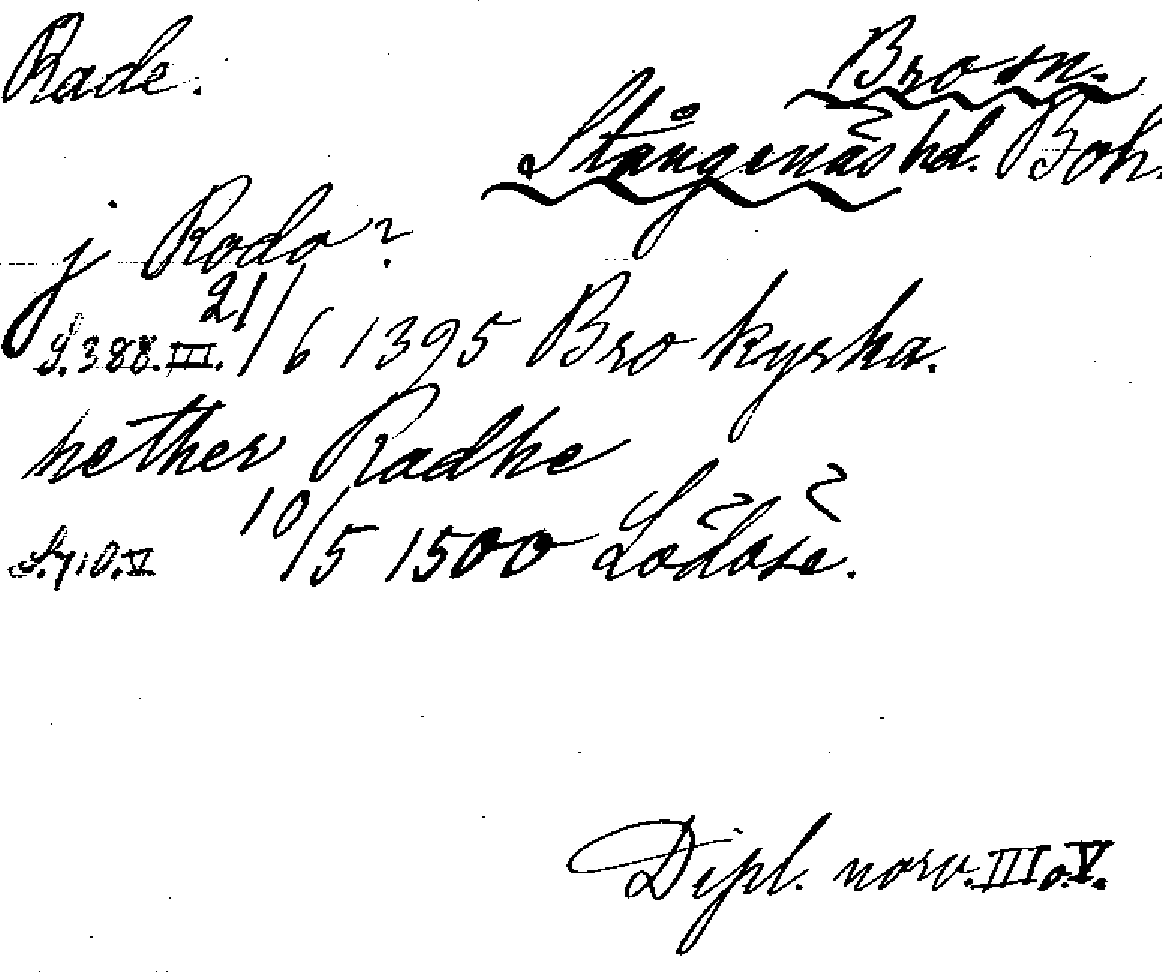 Rade.
Bro sn.
Stångenäs hd. Boh.
j Rodo?
S. 388. III. 21/6 1395 Bro kyrka.
hether Radhe
S. 710. V. 10/5 1500 Lödöse.
Dipl. norv. III o. V.